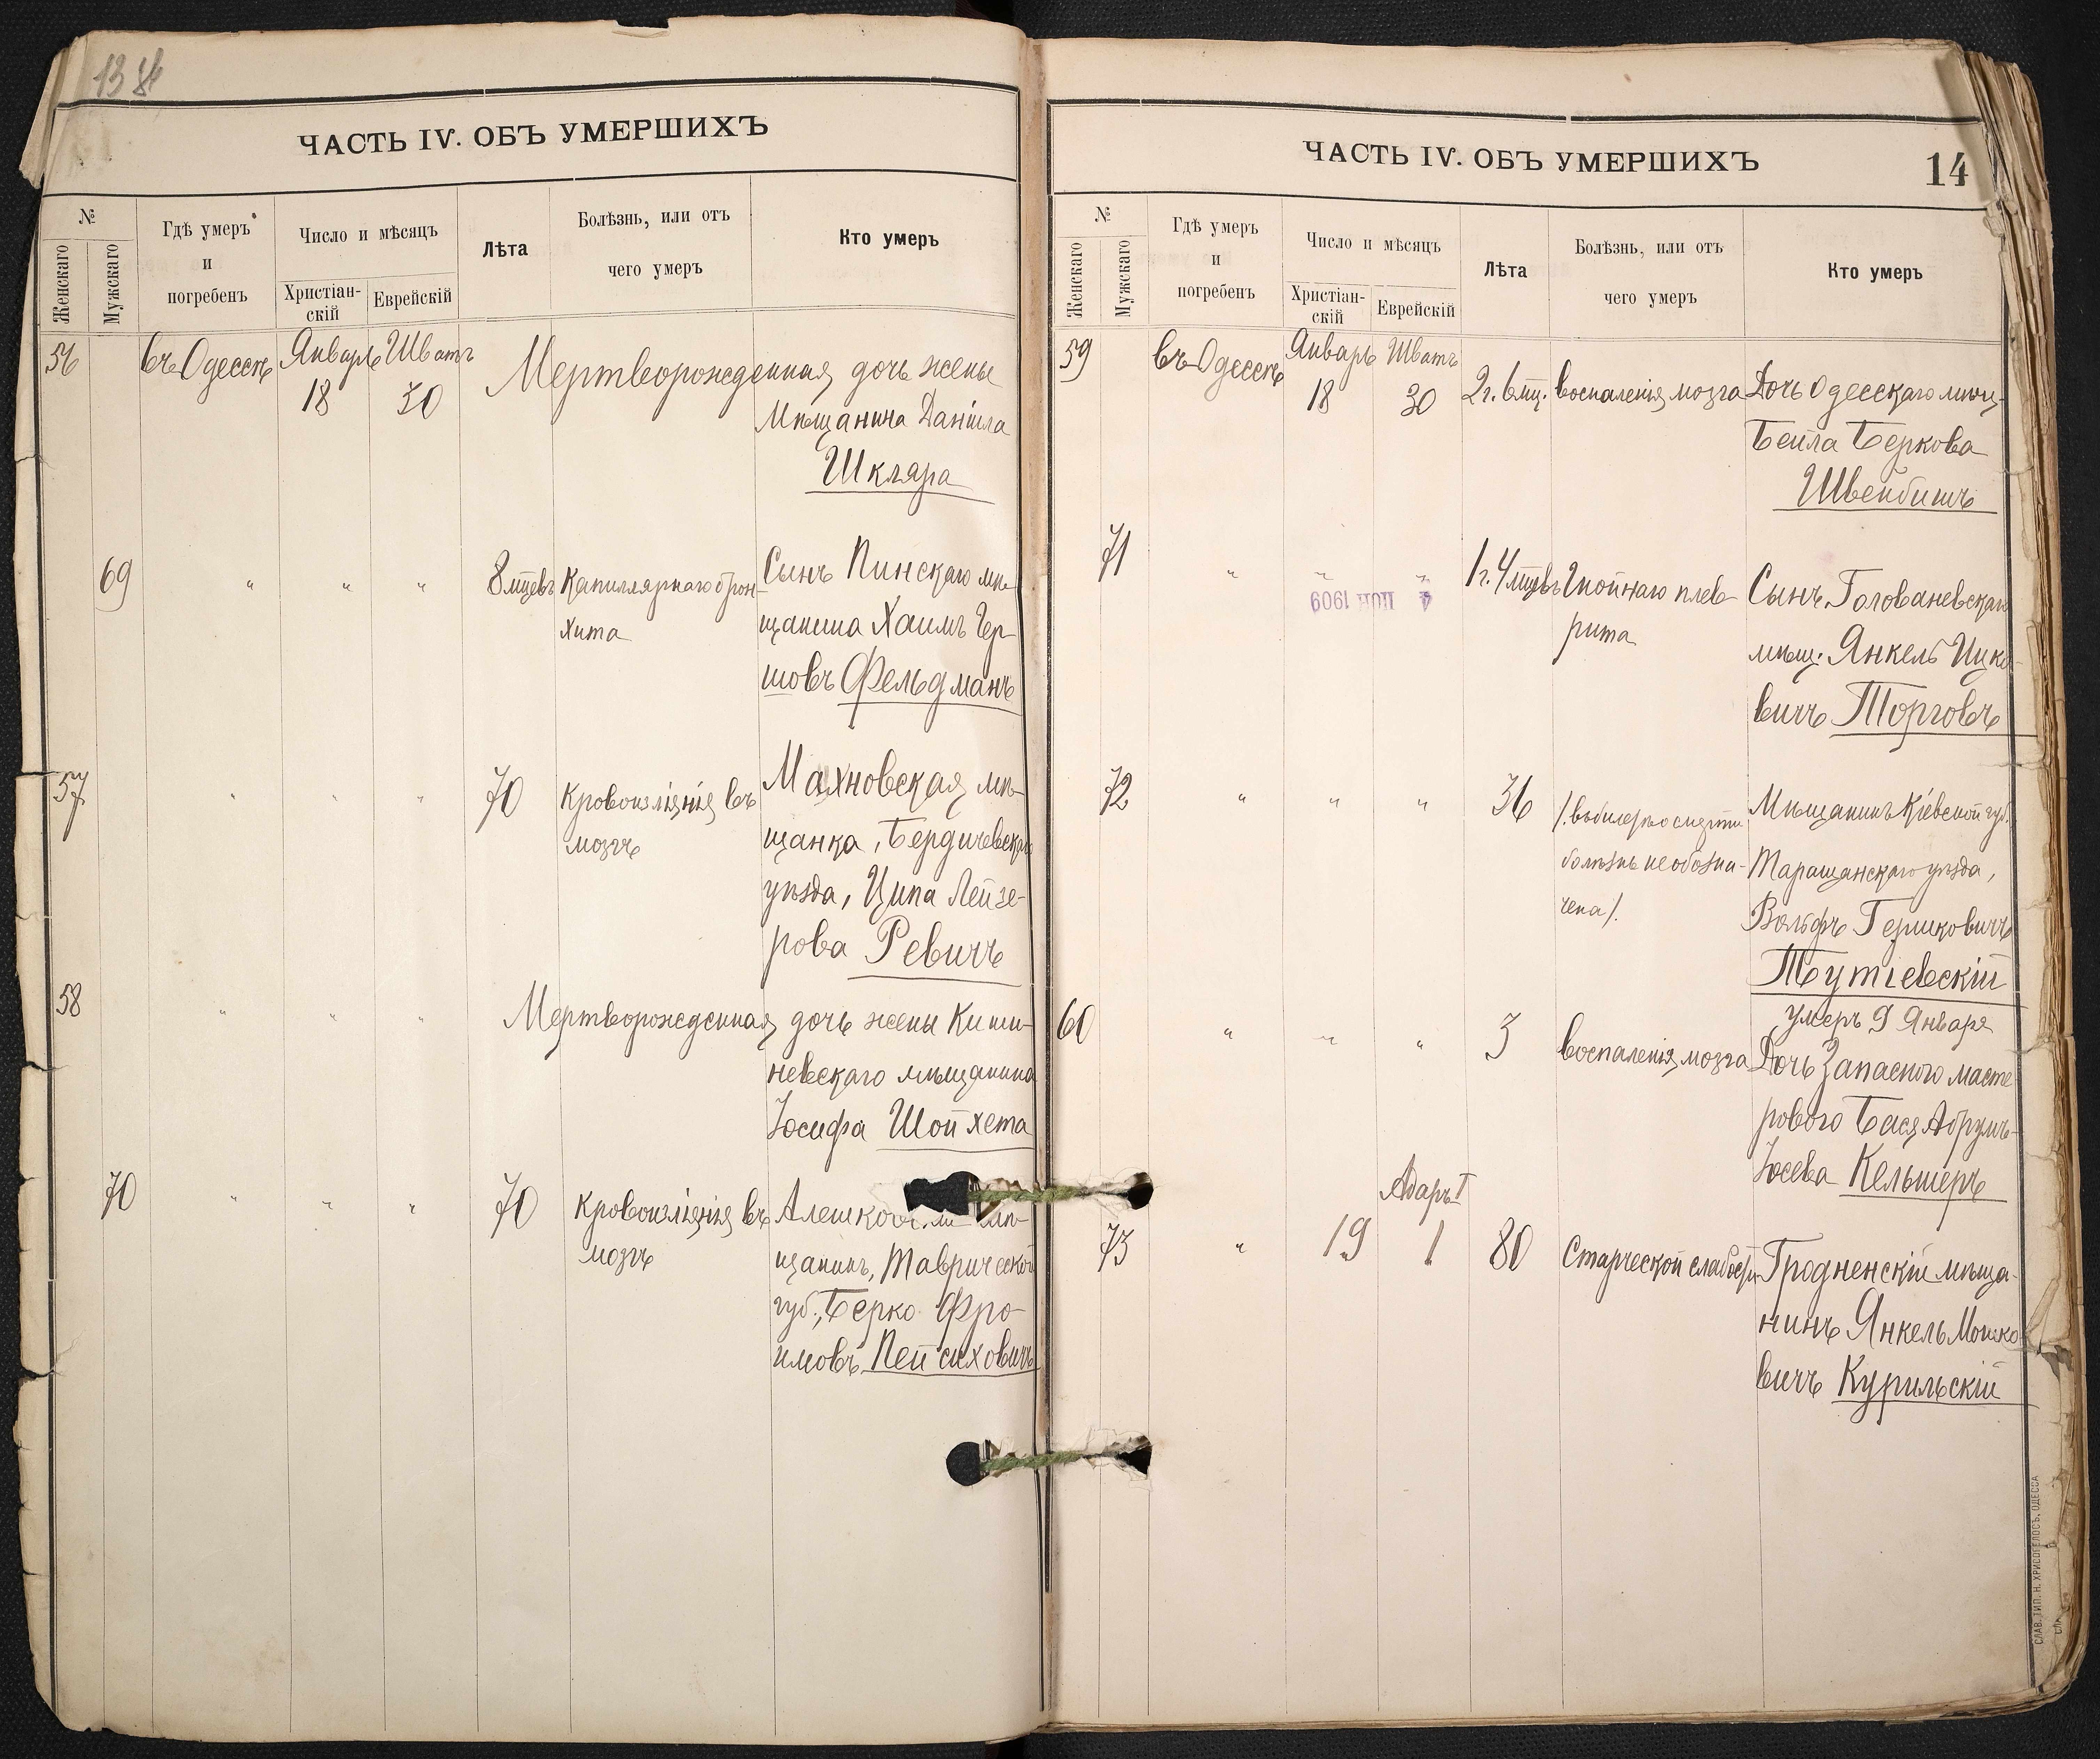 13
ЧАСТЬ IV. ОБЪ УМЕРШИХЪ
№
Женскаго
Мужскаго
Гдѣ умеръ
и
погребенъ
Число и мѣсяцъ
Христіан-
скій
Еврейскій
Лѣта
Болѣзнь, или отъ
чего умеръ
Кто умеръ
56 въ Одессѣ Январь 18 Шватъ 30 Мертворожденная дочь жены
Мѣщанина Даніила
Шкляра
69 " " " 8 мцевъ Капиллярнаго брон-
хита
Сынъ Пинскаго мѣ-
щанина Хаимъ Гер-
шовъ Фельдманъ
57 " " " 70 Кровоизліянія въ
мозгъ
Махновская мѣ-
щанка, Бердичевскаго
уѣзда, Ципа Лейзе-
рова Ревичъ
58 " " " Мертворожденная дочь жены Киши-
невскаго мѣщанина
Іосифа Шойхета
70 " " " 70 Кровоизліянія въ
мозгъ
Алешковскій мѣ-
щанинъ, Таврической
губ., Берко Фро-
имовъ Пейсиховичъ
ЧАСТЬ IV. ОБЪ УМЕРШИХЪ
14
№
Женскаго
Мужскаго
Гдѣ умеръ
и
погребенъ
Число и мѣсяцъ
Христіан-
скій
Еврейскій
Лѣта
Болѣзнь, или отъ
чего умеръ
Кто умеръ
59 въ Одессѣ Январь 18 Шватъ 30 2 г. 6 мц. воспаленія мозга
Дочь Одесскаго мѣщ.
Бейла Беркова
Швенбишъ
71 " " " 1 г. 4 мцевъ Гнойнаго плев-
рита
4 1909
Сынъ Голованевскаго
мѣщ. Янкель Ицко-
вичъ Торговъ
72 " " " 36 /въ билетѣ о смерти
болѣзнь не обозна-
чена/.
Мѣщанинъ Кіевской губ.
Таращанскаго уѣзда,
Вольфъ Гершковичъ
Тутіевскій
умеръ 9 Января
60 " " " 3 воспаленія мозга
Дочь Запасного масте-
рового Бася Абрумъ-
Іосева Кельмеръ
73 " 19 Адаръ I 1 80 Старческой слабости
Гродненскій мѣща-
нинъ Янкель Мошко-
вичъ Курильскій
СЛАВ. ТИП. Н. ХРИСОГЕЛОСЪ, ОДЕССА